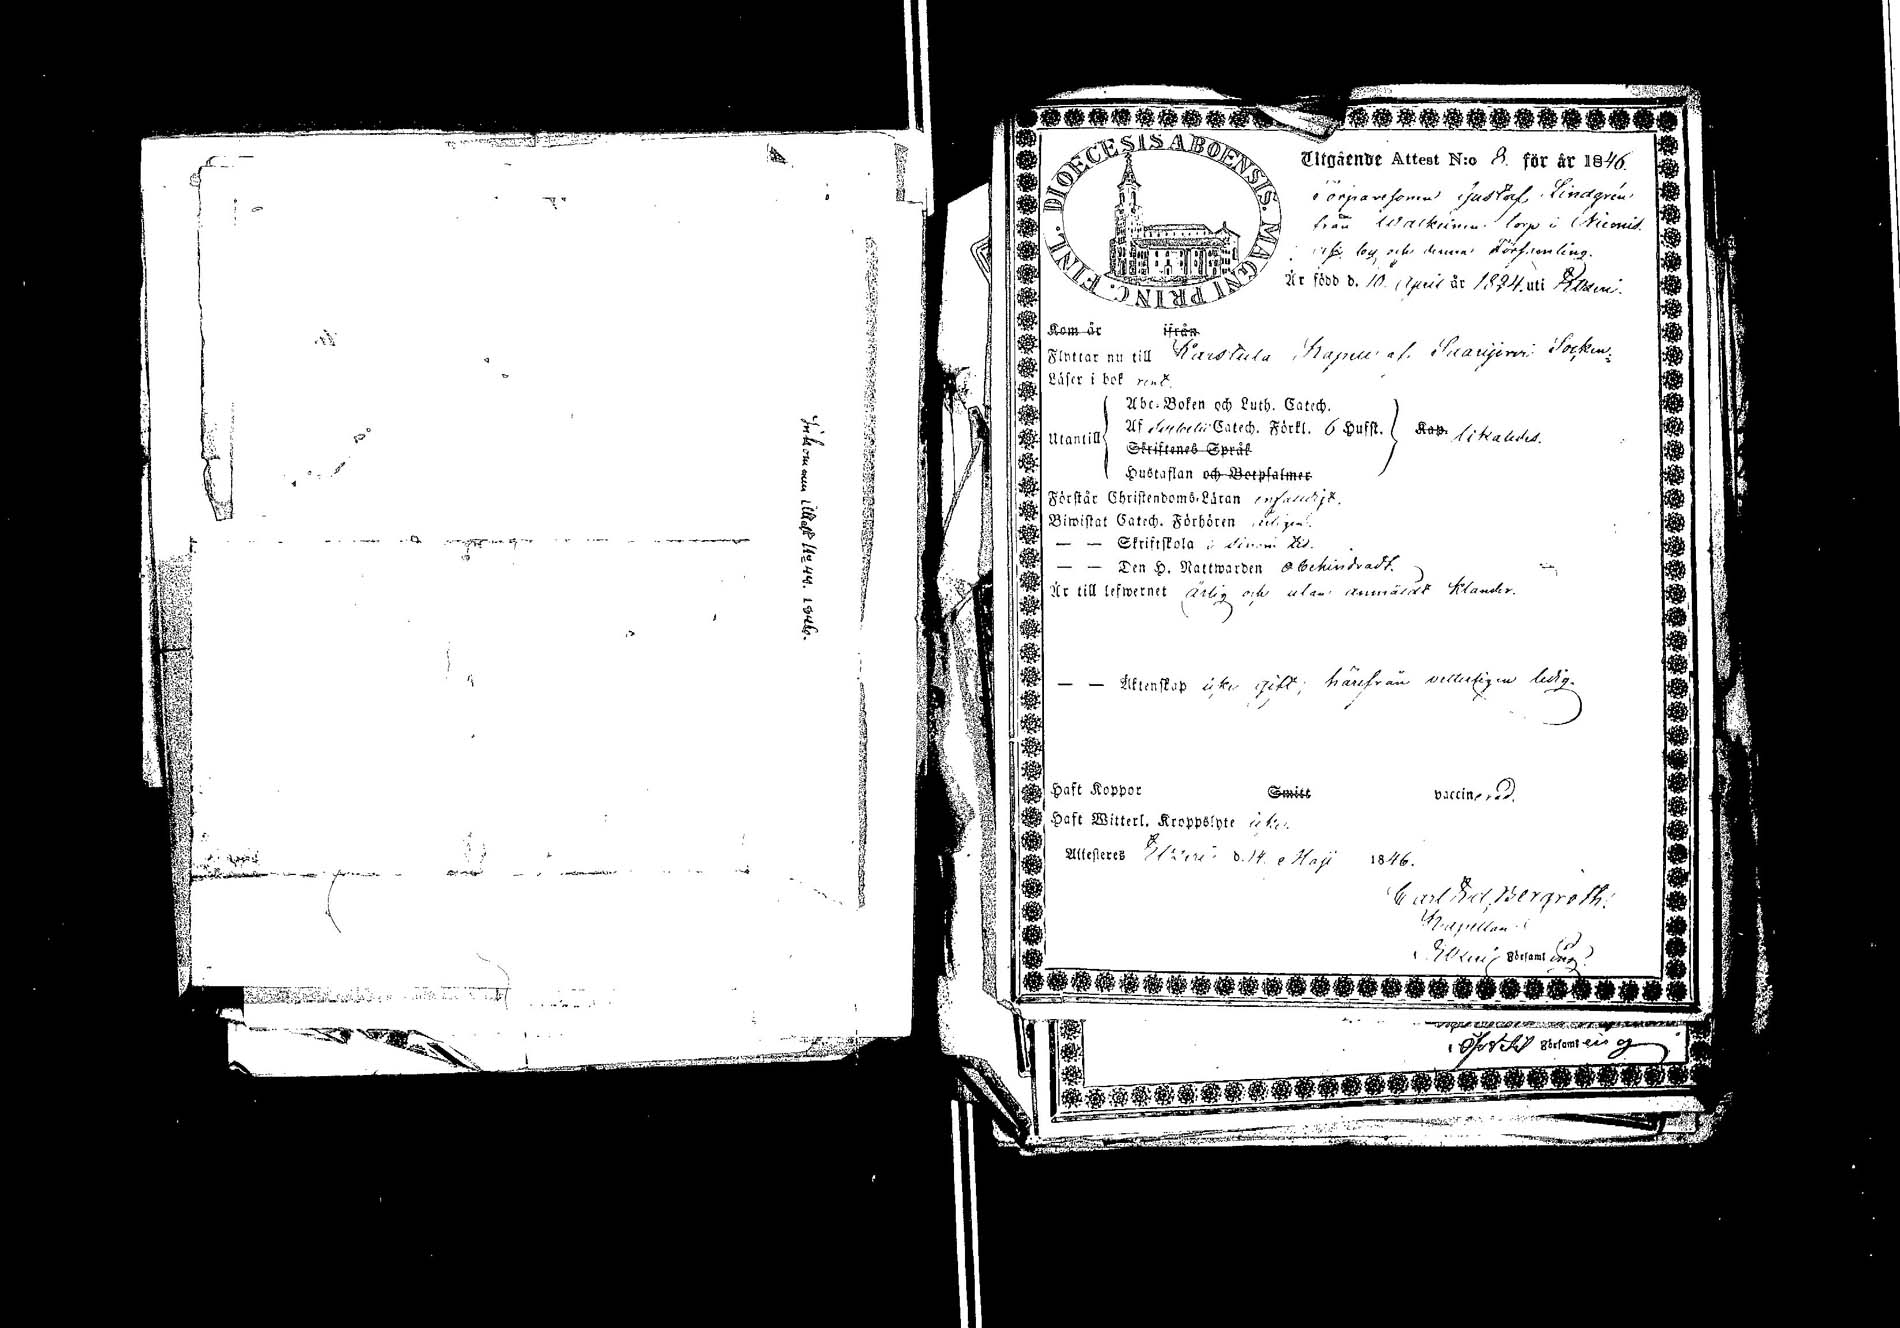 Inkommen Attest No 49. 1846.
DIOECESIS ABOENSIS. MAGNI PRINC. FINL.
Utgående Attest N:o 8. för år 1846.
Torparesonen Gustaf Lindgren
från torp i
by och denna Församling.
Är född d. 10 April år 1824. uti Etseri.
Kom år ifrån
Flyttar nu till Karstula Kapell af Saarijervi Socken.
Läser i bok rent.
Abc-Boken och Luth. Catech.
Utantill Af Svebelii Catech. Förkl. 6 Hufst. Kap. likaledes.
Skriftenes Språk
Hustaflan och Botpsalmer
Förstår Christendoms-Läran enfaldigt.
Biwistat Catech. Förhören årligen.
— — Skriftskola i sinom tid.
— — Den H. Nattwarden obehindradt.
Är till lefwernet ärlig och utan anmäldt klander.
— — Äktenskap icke gift; härifrån vederbörligen ledig.
Haft Koppor Smitt vaccinerad.
Haft Witterl. Kroppslyte icke.
Attesteres Etseri d. 14. Maji 1846.
Carl Ed. Bergroth.
Kapellan
i Etseri Församling.
Församling